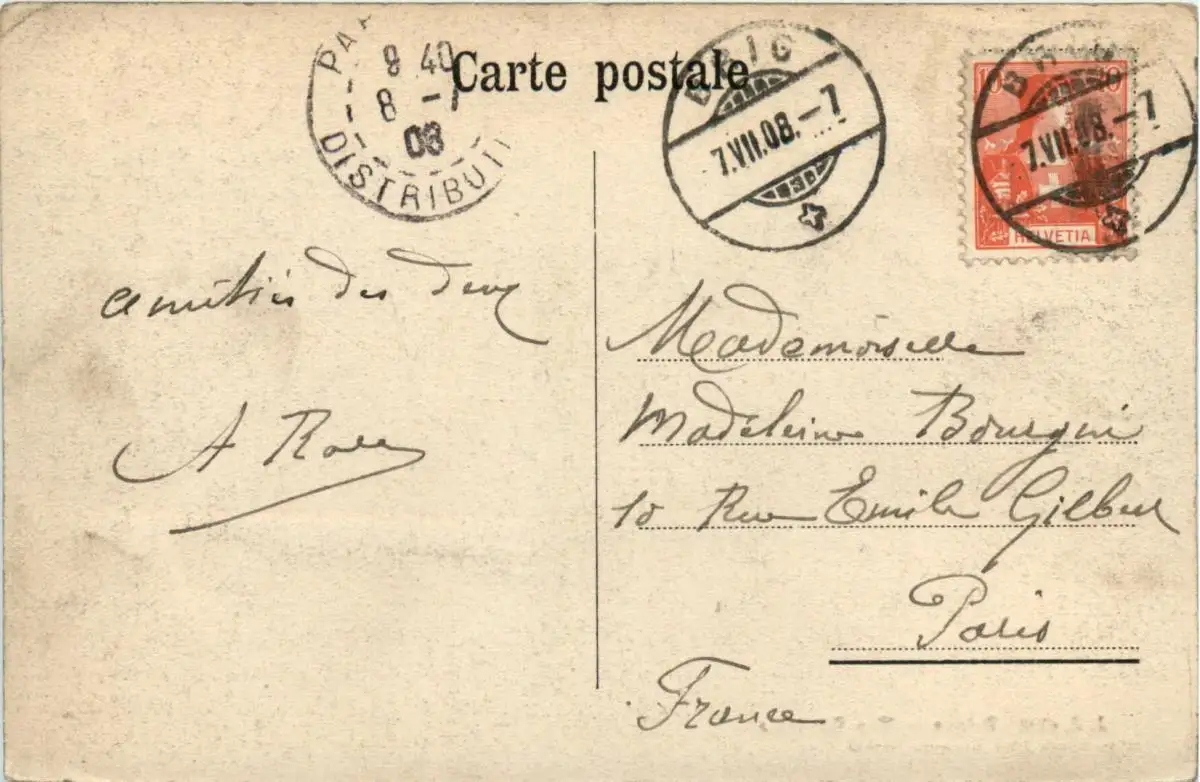 Carte postale
PA
8 40
8 -7
08
DISTRIBUTI
BRIG
7.VII.08.-7
3
10 10
HELVETIA
BRIG
7.VII.08.-7
amitiés des deux
A
Mademoiselle
Madeleine Bourgin
10 Rue Emile Gilbert
Paris
France